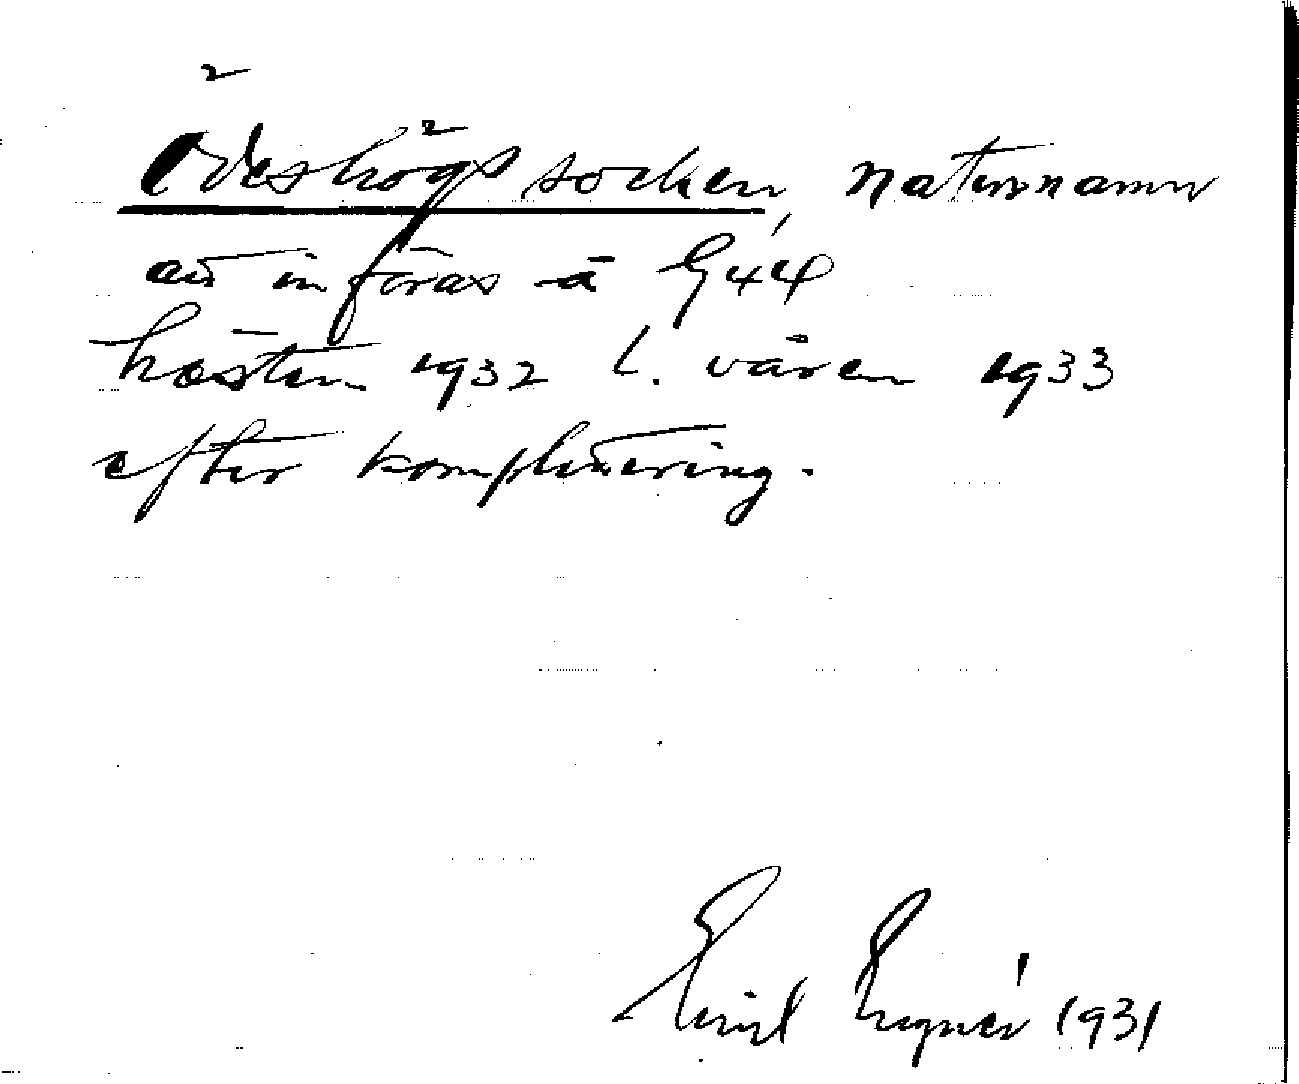 Ödeshögs socken, naturnamn
att införas å G4Ä
hösten 1932 l. våren 1933
efter komplettering.
Emil 1931